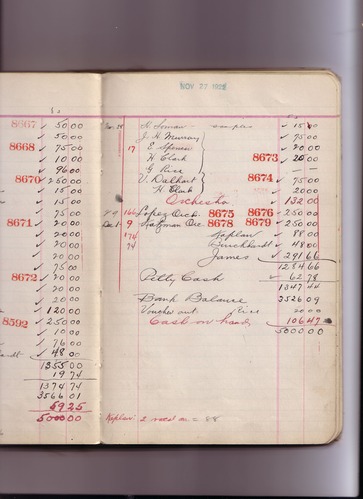 NOV 27 1925
8667 ✓ 50 00
✓ 50 00
8668 ✓ 75 00
✓ 10 00
✓ 96 00
8670 ✓ 250 00
✓ 15 00
✓ 15 00
✓ 75 00
8671 ✓ 20 00
✓ 20 00
✓ 20 00
✓ 75 00
8672 ✓ 20 00
✓ 20 00
✓ 120 00
8592 ✓ 250 00
✓ 10 00
✓ 76 00
✓ 48 00
1355 00
19 74
1374 74
3566 01
59 25
5000 00
samples ✓ 15 00
J. H. Murray ✓ 75 00
17 E Spencer ✓ 20 00
H Clark 8673 ✓ 20 00
G Rice — —
V. Dalhart 8674 ✓ 75 00
H Clark 20 00
Orchestra ✓ 132 00
166 Lopez Orch. 8675 8676 ✓ 250 00
9 8678 8679 ✓ 250 00
174 Kaplan ✓ 88 00
74 Burckhardt ✓ 48 00
James ✓ 291 66
1284 66
Petty Cash ✓ 62 78
1347 44
Bank Balance 3526 09
Voucher out Rice 20 00
Cash on hand 106 47
5000 00
Kaplan: 2 = 88